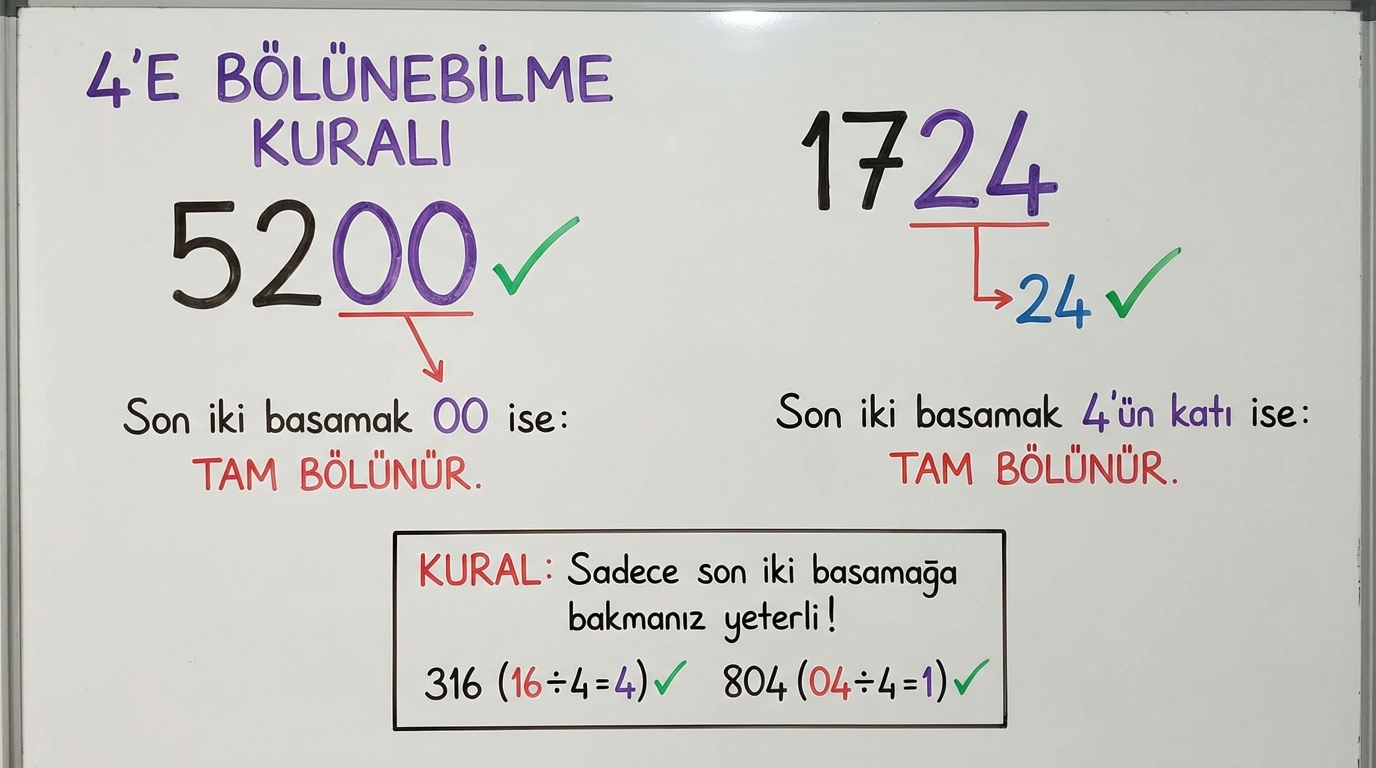 4'E BÖLÜNEBİLME
KURALI
5200 ✓
Son iki basamak 00 ise:
TAM BÖLÜNÜR.
1724
24 ✓
Son iki basamak 4'ün katı ise:
TAM BÖLÜNÜR.
KURAL: Sadece son iki basamağa
bakmanız yeterli!
316 (16÷4=4)✓ 804 (04÷4=1)✓